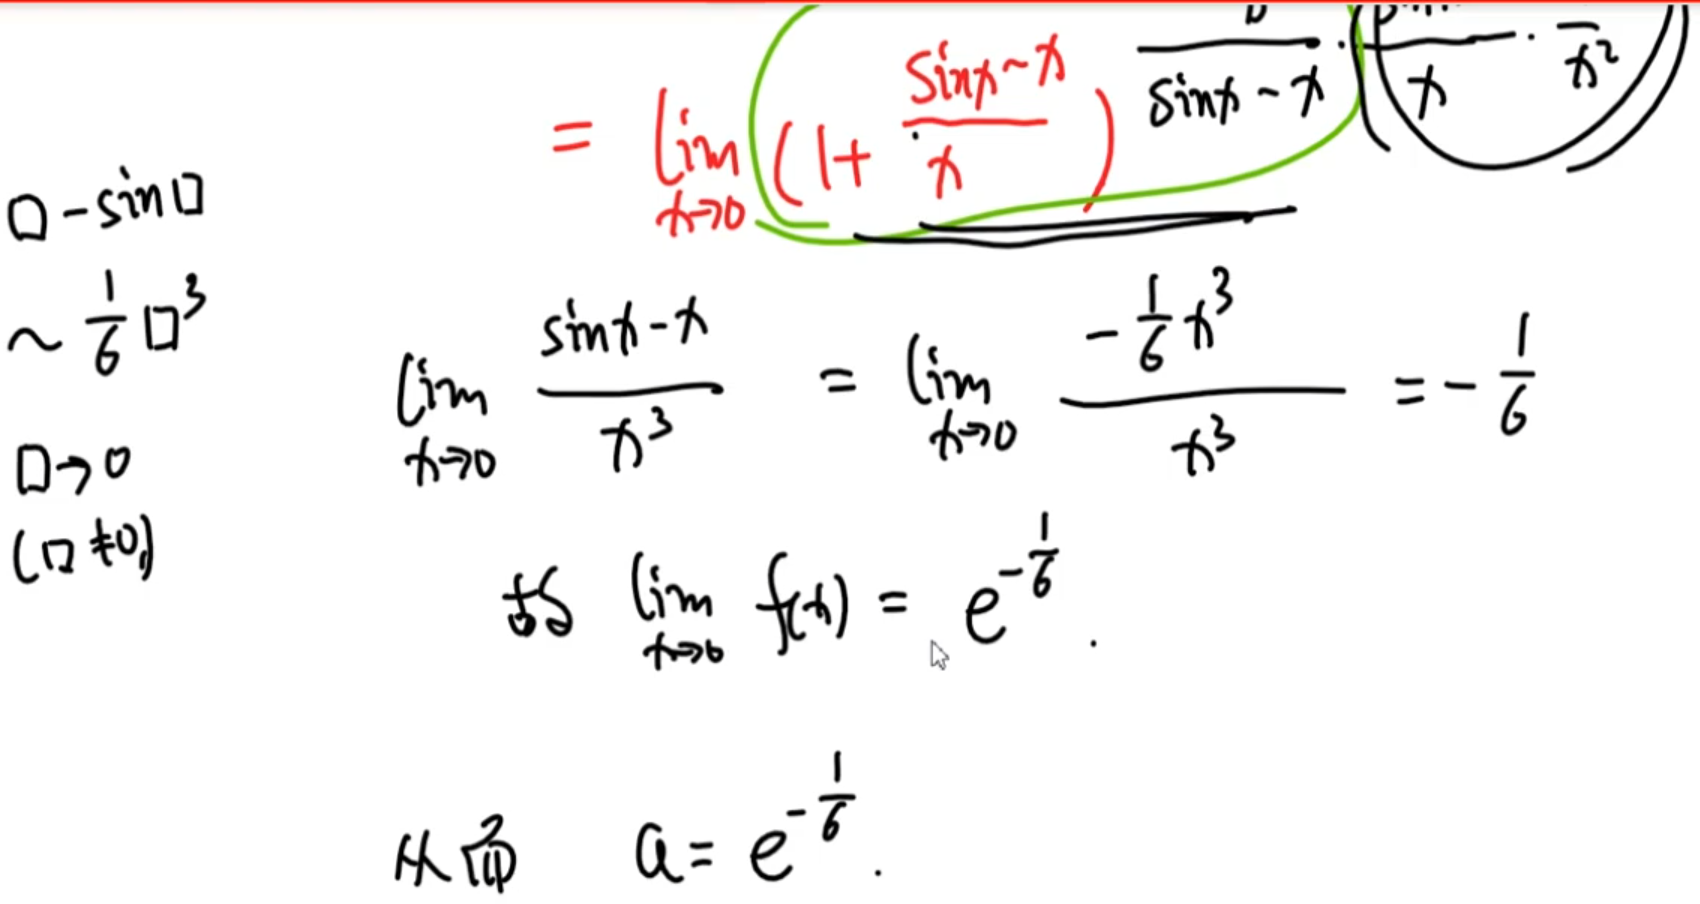 = lim x→0 (1 + (sinx - x)/x)^( /(sinx - x) · ( /x · /x²))
□ - sin□
~ 1/6 □³
□→0
(□≠0)
lim x→0 (sinx - x)/x³ = lim x→0 (-1/6 x³)/x³ = -1/6
故 lim x→0 f(x) = e^(-1/6) .
从而 a = e^(-1/6) .